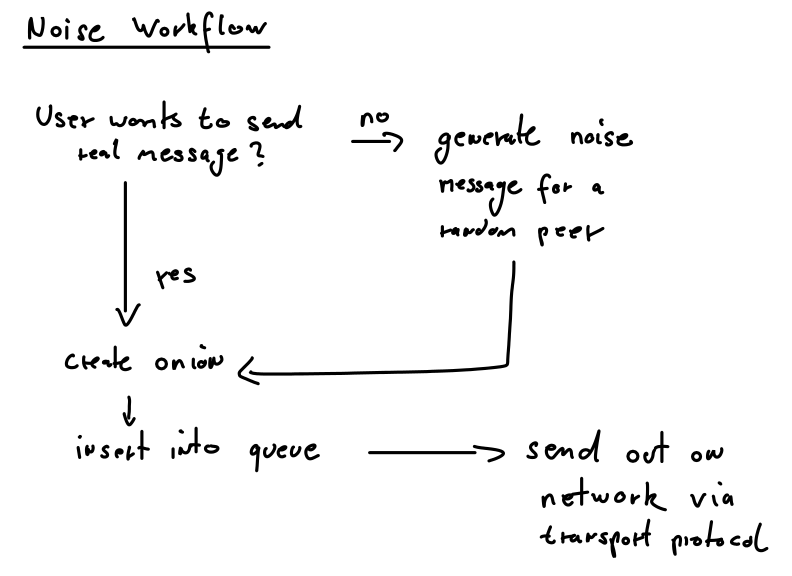 Noise Workflow
User wants to send
real message?
no
generate noise
message for a
random peer
yes
create onion
insert into queue
send out on
network via
transport protocol